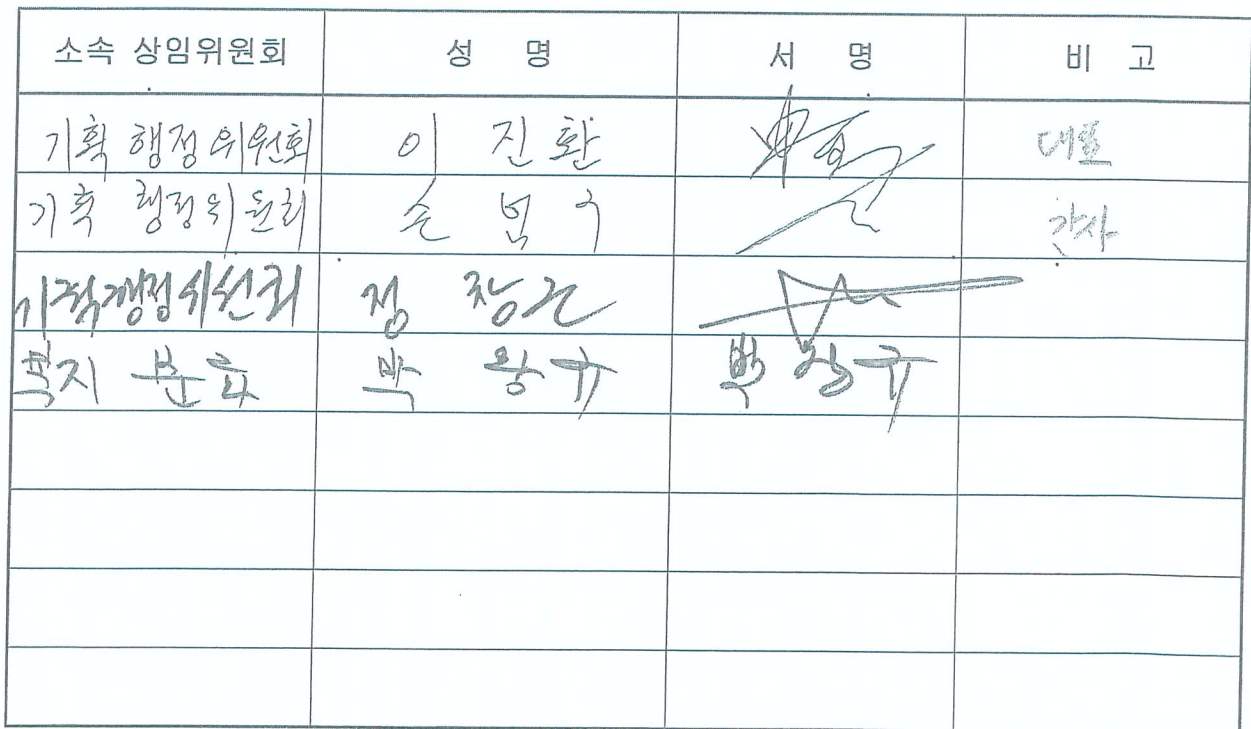 소속 상임위원회 성 명 서 명 비 고
기획 행정위원회 이 진 환 대표
기획 행정위원회 손 범 구 간사
기획행정위원회 정 창 근
복지 문화 박 왕규 박 왕규